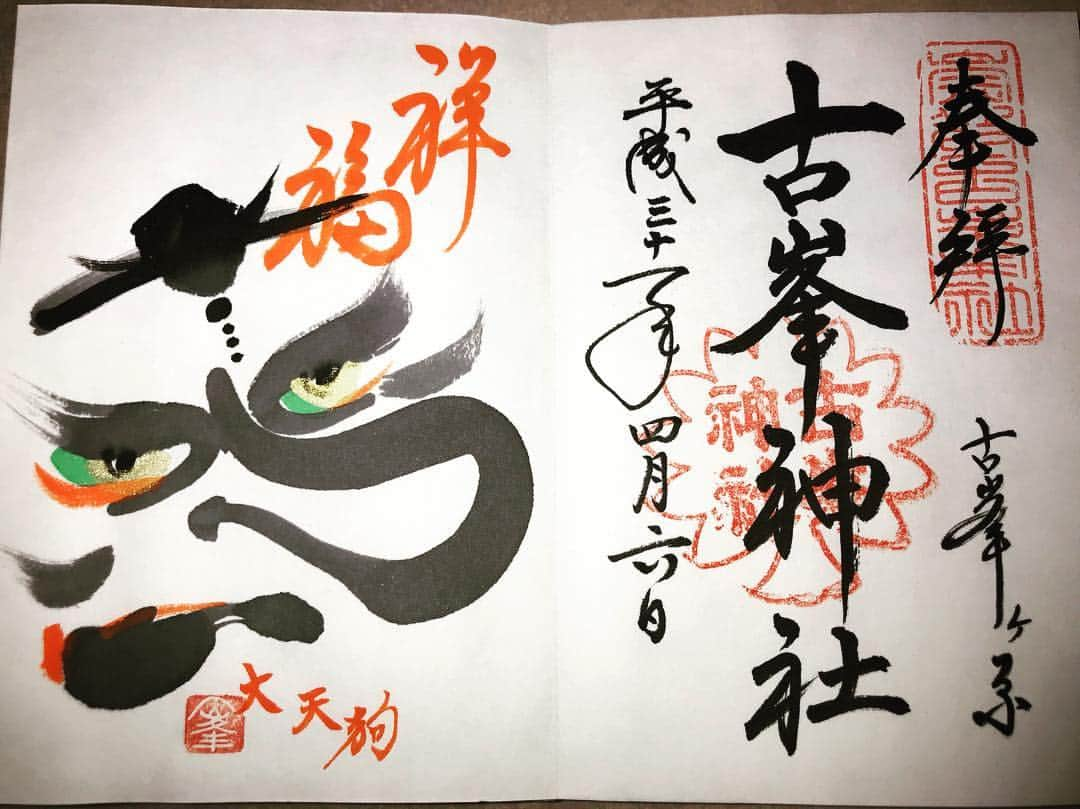 奉拝
古峯ヶ原
古峯神社
古峯神社
平成三十一年四月六日
祥福
大天狗